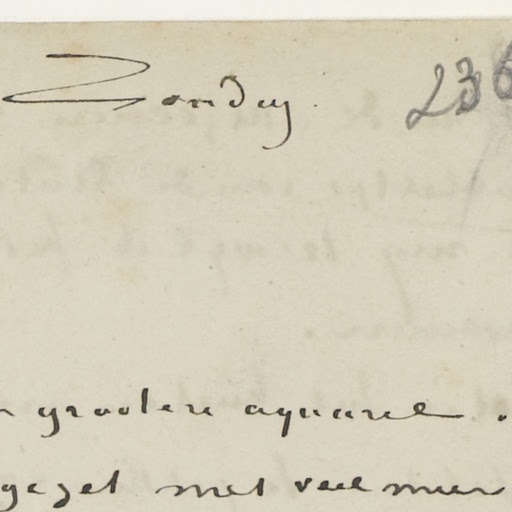 Zondag.
236
grootere aquarel.
gezet met veel meer